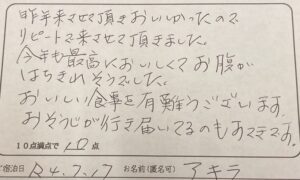 昨年来させて頂きおいしかったので
リピートで来させて頂きました。
今年も最高においしくてお腹が
はちきれそうでした。
おいしい食事を有難うございます。
おそうじが行き届いてるのもステキです。
10点満点で 10 点
宿泊日 R4.7.17 お名前(匿名可) アキラ